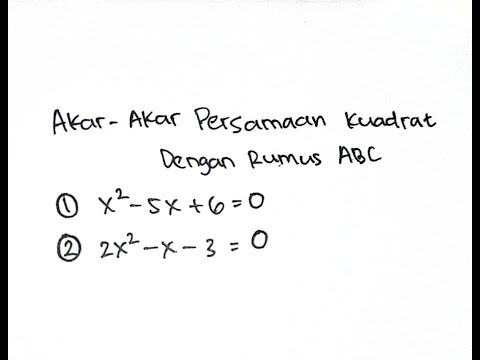 Akar-Akar Persamaan Kuadrat
Dengan Rumus ABC
① x² - 5x + 6 = 0
② 2x² - x - 3 = 0